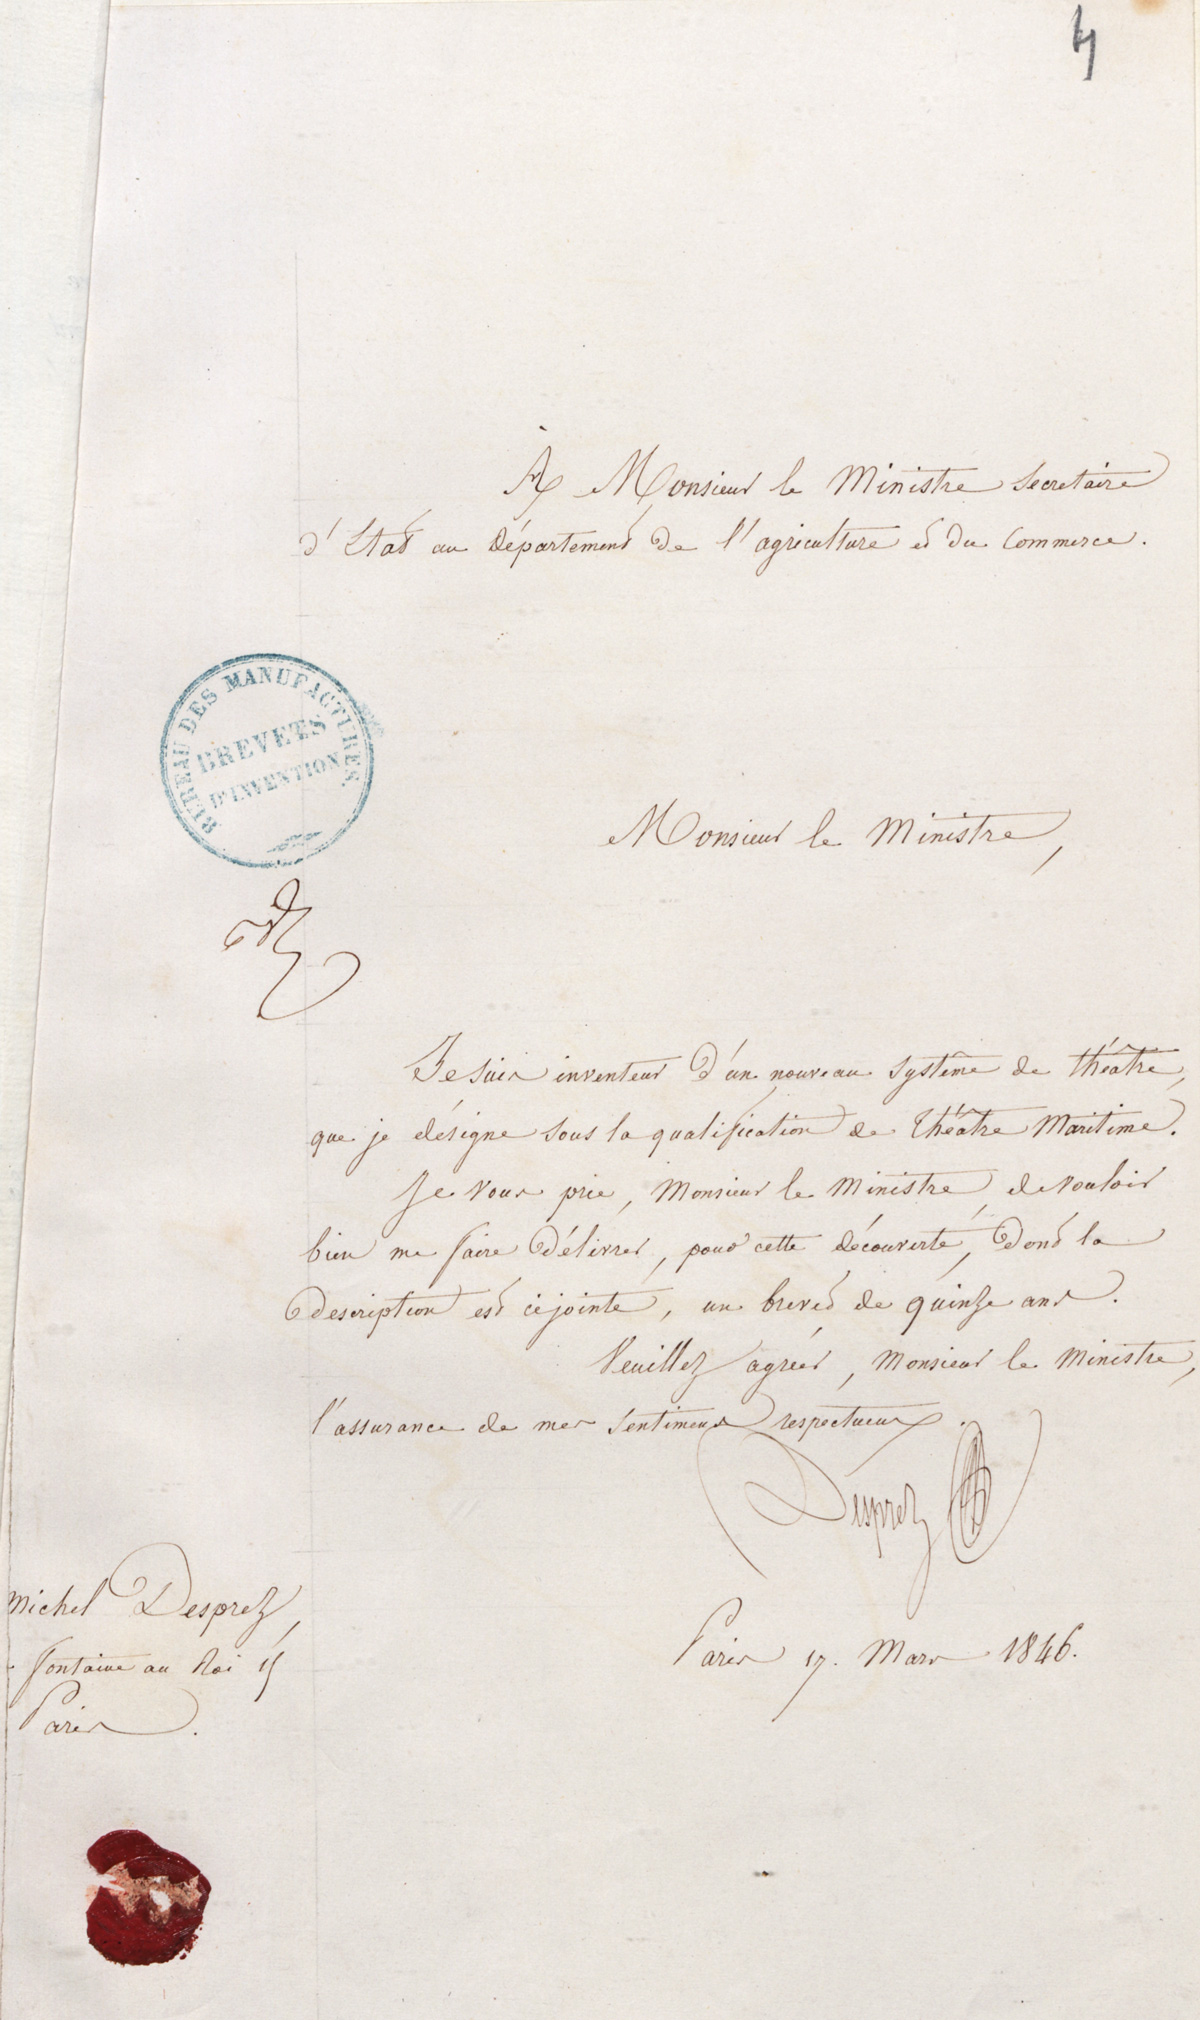 4
A Monsieur le Ministre Secretaire
d'Etat au département de l'agriculture et du Commerce.
BUREAU DES MANUFACTURES.
BREVETS
D'INVENTION
Monsieur le Ministre,
Je suis inventeur d'un nouveau système de théâtre,
que je désigne sous la qualification de théâtre Maritime.
Je vous prie, Monsieur le Ministre, de vouloir
bien me faire délivrer, pour cette découverte, dont la
description est cijointe, un brevet de quinze ans.
Veuillez agréer, Monsieur le Ministre,
l'assurance de mes sentimens respectueux.
Desprez
Michel Desprez,
fontaine au Roi
Paris.
Paris 17. Mars 1846.